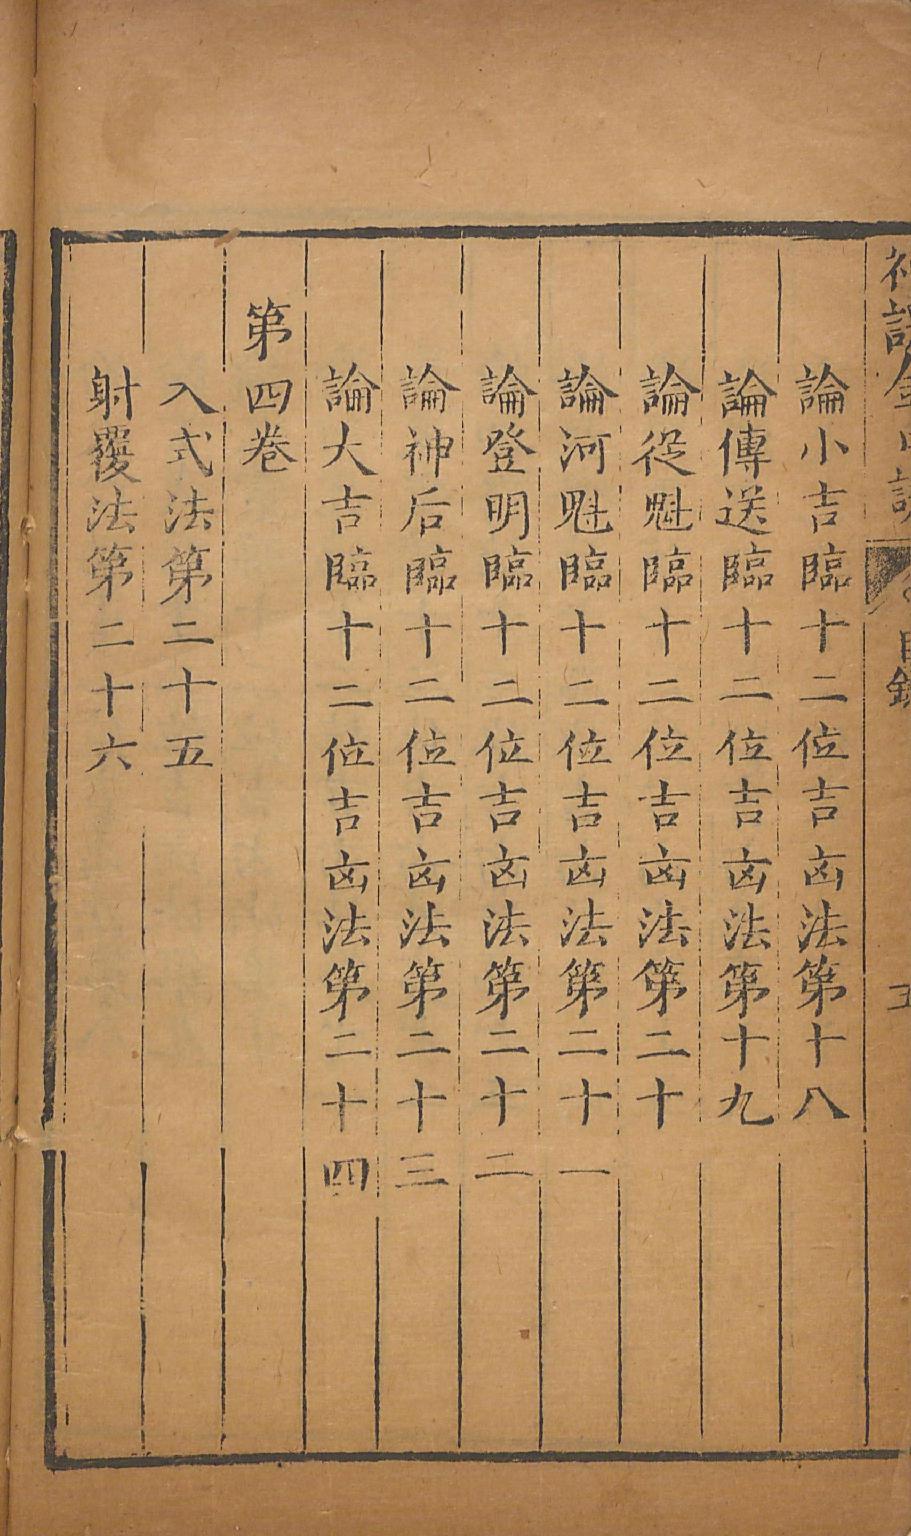 論小吉臨十二位吉㐫法第十八
論傳送臨十二位吉㐫法第十九
論從魁臨十二位吉㐫法第二十
論河魁臨十二位吉㐫法第二十一
論登明臨十二位吉㐫法第二十二
論神后臨十二位吉㐫法第二十三
論大吉臨十二位吉㐫法第二十四
第四卷
入式法第二十五
射覆法第二十六